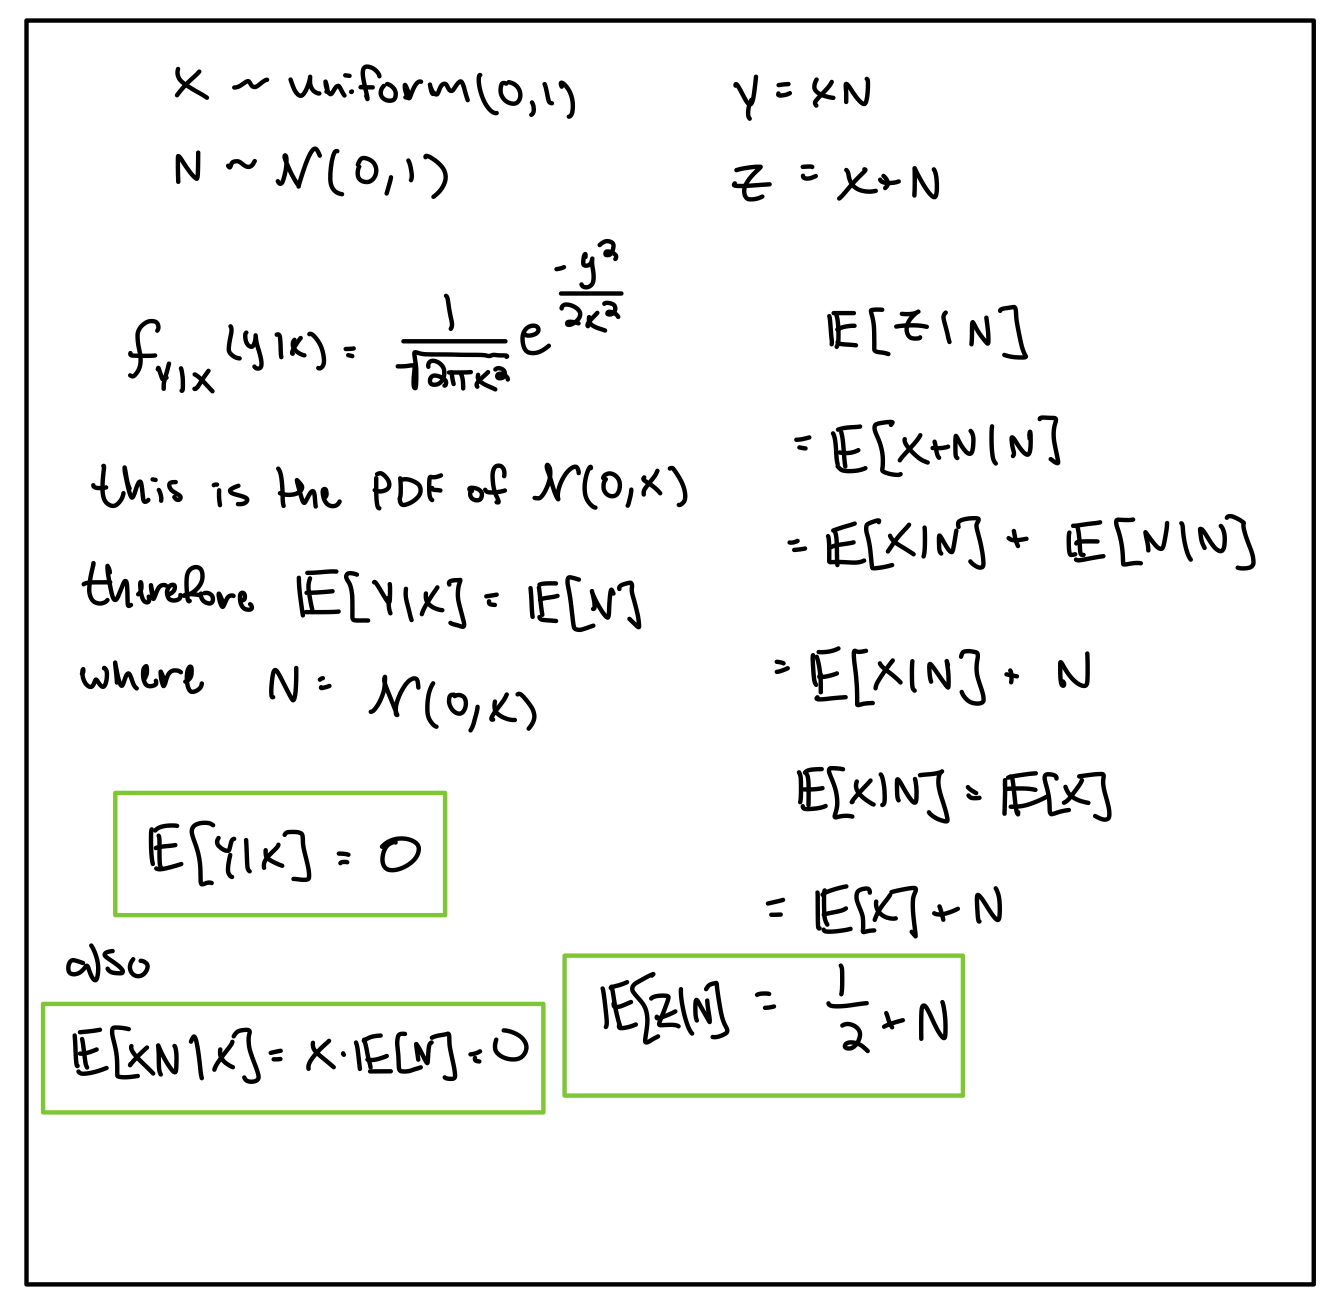 X ~ uniform(0,1)
N ~ 𝒩(0,1)
Y = XN
Z = X+N
f_{Y|X}(y|x) = \frac{1}{\sqrt{2πx²}} e^{\frac{-y²}{2x²}}
this is the PDF of 𝒩(0,x)
therefore 𝔼[Y|X] = 𝔼[N]
where N = 𝒩(0,x)
𝔼[Y|X] = 0
also
𝔼[XN|X] = X·𝔼[N] = 0
𝔼[Z|N]
= 𝔼[X+N|N]
= 𝔼[X|N] + 𝔼[N|N]
= 𝔼[X|N] + N
𝔼[X|N] = 𝔼[X]
= 𝔼[X] + N
𝔼[Z|N] = \frac{1}{2} + N